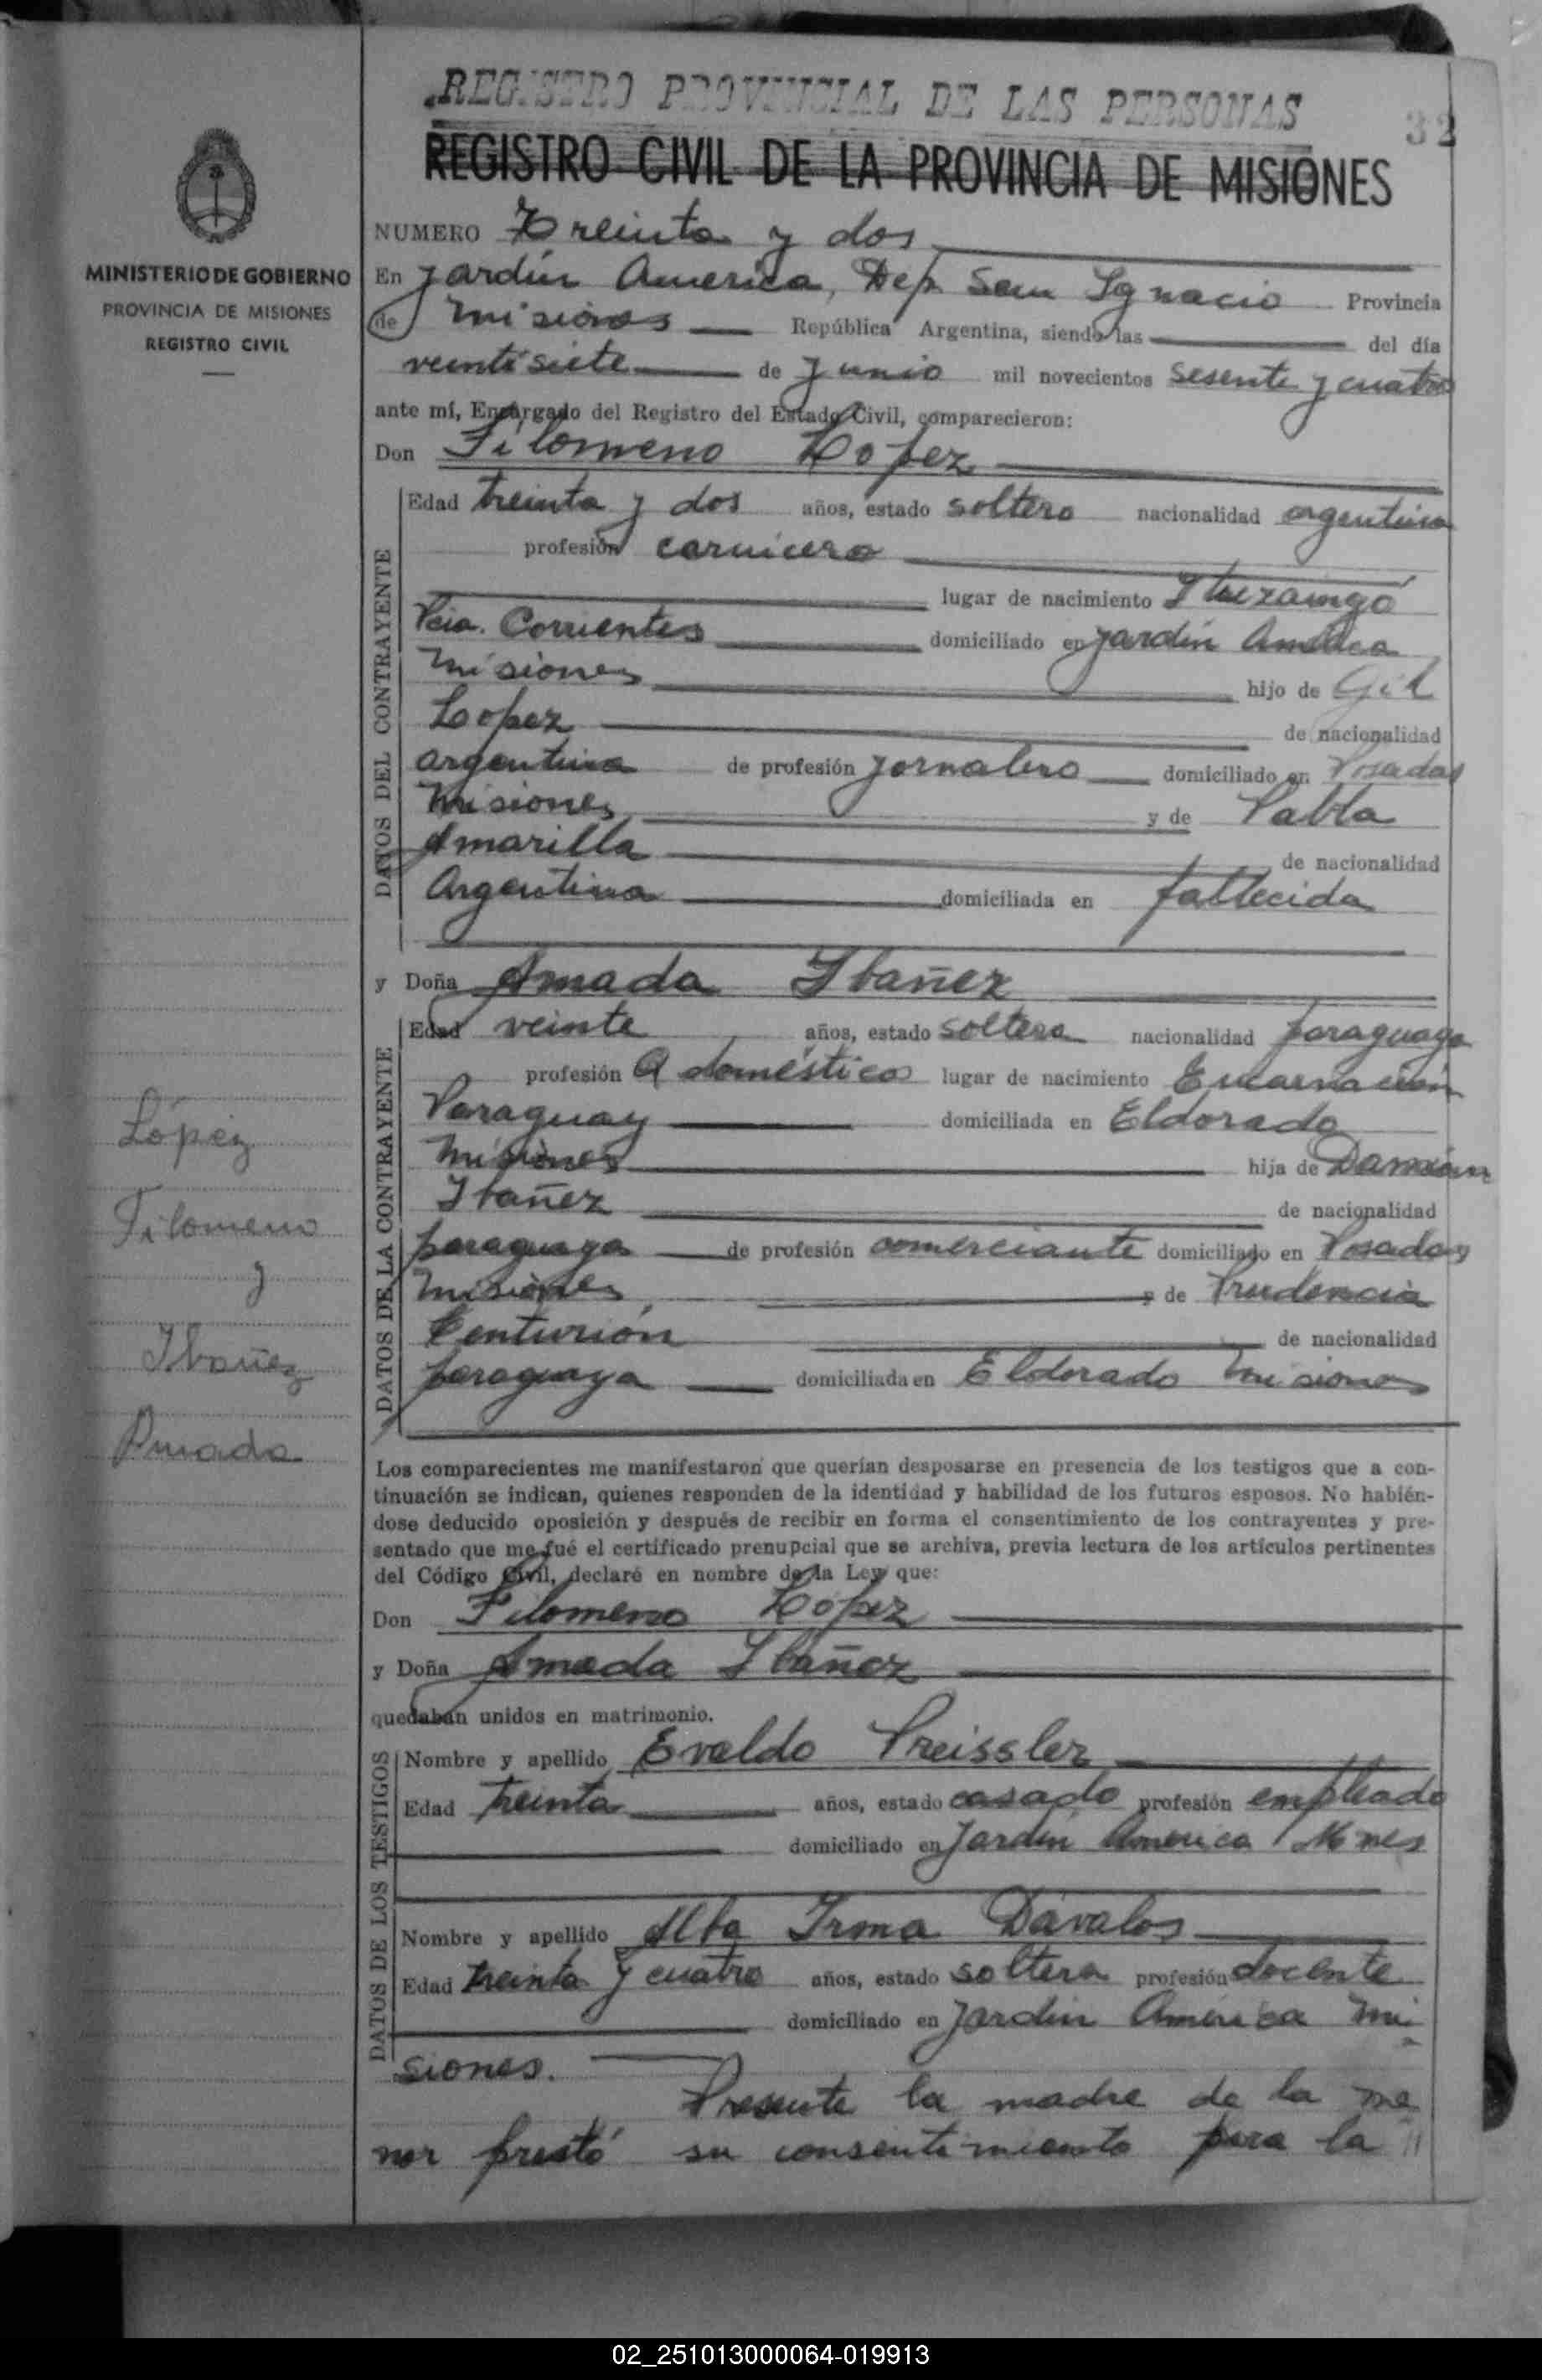 REGISTRO PROVINCIAL DE LAS PERSONAS
32
REGISTRO CIVIL DE LA PROVINCIA DE MISIONES
MINISTERIO DE GOBIERNO
PROVINCIA DE MISIONES
REGISTRO CIVIL
NUMERO Treinta y dos
En Jardín America, Dep. San Ignacio Provincia
de Misiones República Argentina, siendo las del día
veintisiete de Junio mil novecientos sesenta y cuatro
ante mí, Encargado del Registro del Estado Civil, comparecieron:
Don Filomeno Lopez
DATOS DEL CONTRAYENTE
Edad treinta y dos años, estado soltero nacionalidad argentina
profesión carnicero
lugar de nacimiento Ituzaingó
Pcia. Corrientes domiciliado en Jardín América
Misiones hijo de Gil
Lopez de nacionalidad
argentina de profesión Jornalero domiciliado en Posadas
Misiones y de Pabla
Amarilla de nacionalidad
Argentina domiciliada en fallecida
y Doña Amada Ibañez
DATOS DE LA CONTRAYENTE
Edad veinte años, estado soltera nacionalidad paraguaya
profesión Q domésticos lugar de nacimiento Encarnación
Paraguay domiciliada en Eldorado
Misiones hija de Damián
Ibañez de nacionalidad
paraguaya de profesión comerciante domiciliado en Posadas
Misiones, y de Prudencia
Centurión de nacionalidad
paraguaya domiciliada en Eldorado Misiones
López
Filomeno
y
Ibañez
Amada
Los comparecientes me manifestaron que querían desposarse en presencia de los testigos que a con-
tinuación se indican, quienes responden de la identidad y habilidad de los futuros esposos. No habién-
dose deducido oposición y después de recibir en forma el consentimiento de los contrayentes y pre-
sentado que me fué el certificado prenupcial que se archiva, previa lectura de los artículos pertinentes
del Código Civil, declaré en nombre de la Ley que:
Don Filomeno López
y Doña Amada Ibañez
quedaban unidos en matrimonio.
DATOS DE LOS TESTIGOS
Nombre y apellido Evaldo Preissler
Edad treinta años, estado casado profesión empleado
domiciliado en Jardín América Mnes
Nombre y apellido Alba Irma Dávalos
Edad treinta y cuatro años, estado soltera profesión docente
domiciliado en Jardín América Mi
siones.
Presente la madre de la me
nor prestó su consentimiento para la //
02_251013000064-019913